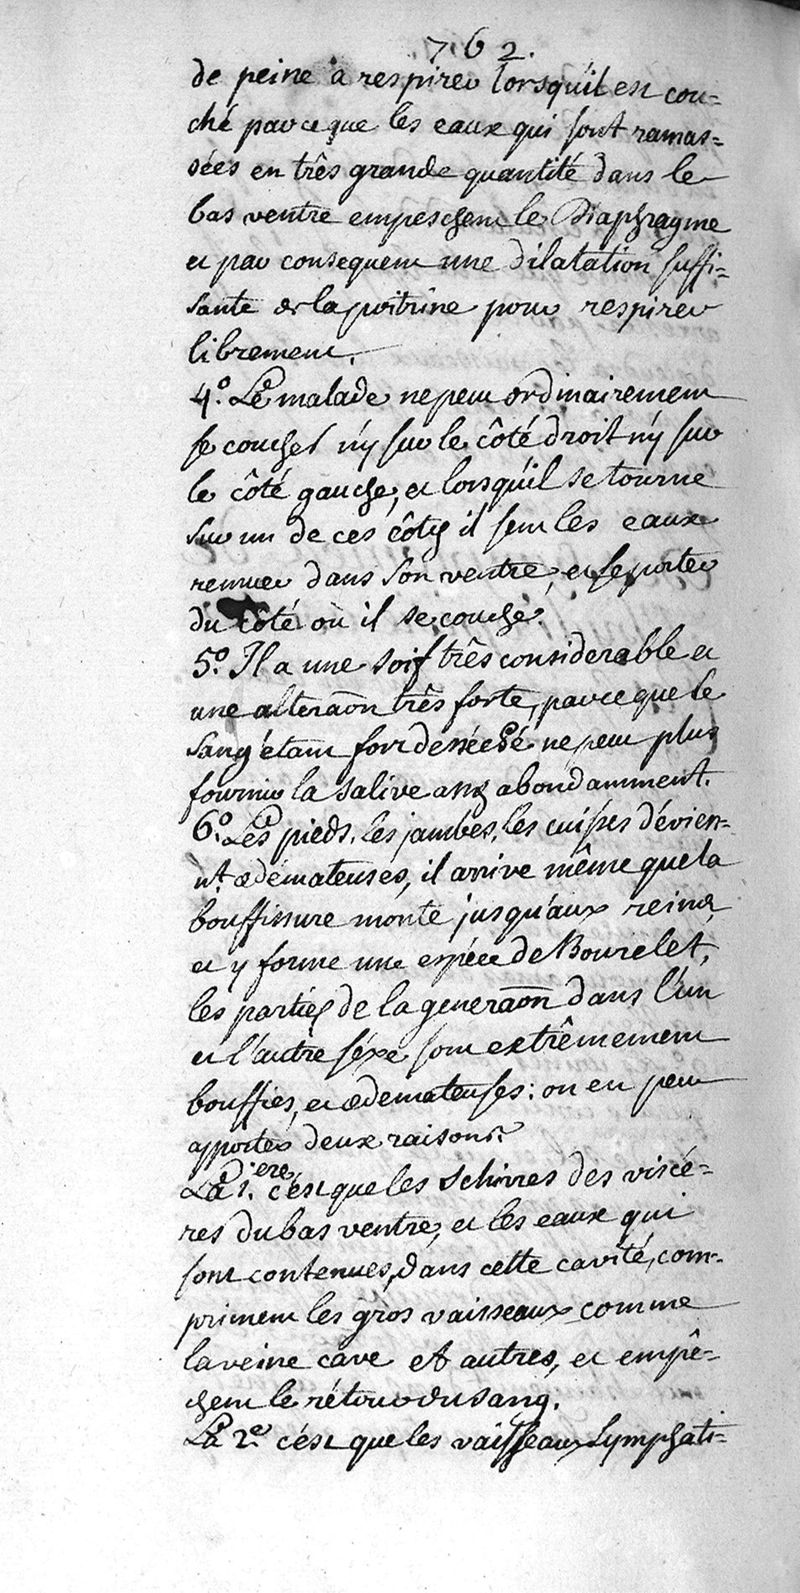 762.
de peine a respirer lorsqu'il est cou=
ché parceque les eaux qui sont ramas=
sées en très grande quantité dans le
bas ventre empeschent le Diaphragme
et par consequent une dilatation suffi=
sante de la poitrine pour respirer
librement.
4.° Le malade ne peut ordinairement
se coucher n'y sur le côté droit n'y sur
le côté gauche, et lorsqu'il se tourne
sur un de ces côtés il sent les eaux
remuer dans son ventre, et se porter
du côté où il se couche.
5.° Il a une soif très considerable et
une alteraõn très forte, parceque le
sang étant fort desséché ne peut plus
fournir la salive assez abondamment.
6.° Les pieds, les jambes, les cuisses dévien=
nt. œdémateuses, il arrive même que la
bouffissure monte jusqu'aux reins,
et y forme une espéce de Bourelet,
les parties de la generaõn dans l'un
et l'autre séxe sont extrêmement
bouffies, et œdemateuses: on en peut
apporter deux raisons.
La 1.ere c'est que les schirres des viscé=
res du bas ventre, et les eaux qui
sont contenues, dans cette cavité, com=
priment les gros vaisseaux comme
la veine cave et autres, et empê=
chent le rétour du sang.
La 2.e c'est que les vaisseaux Lymphati=